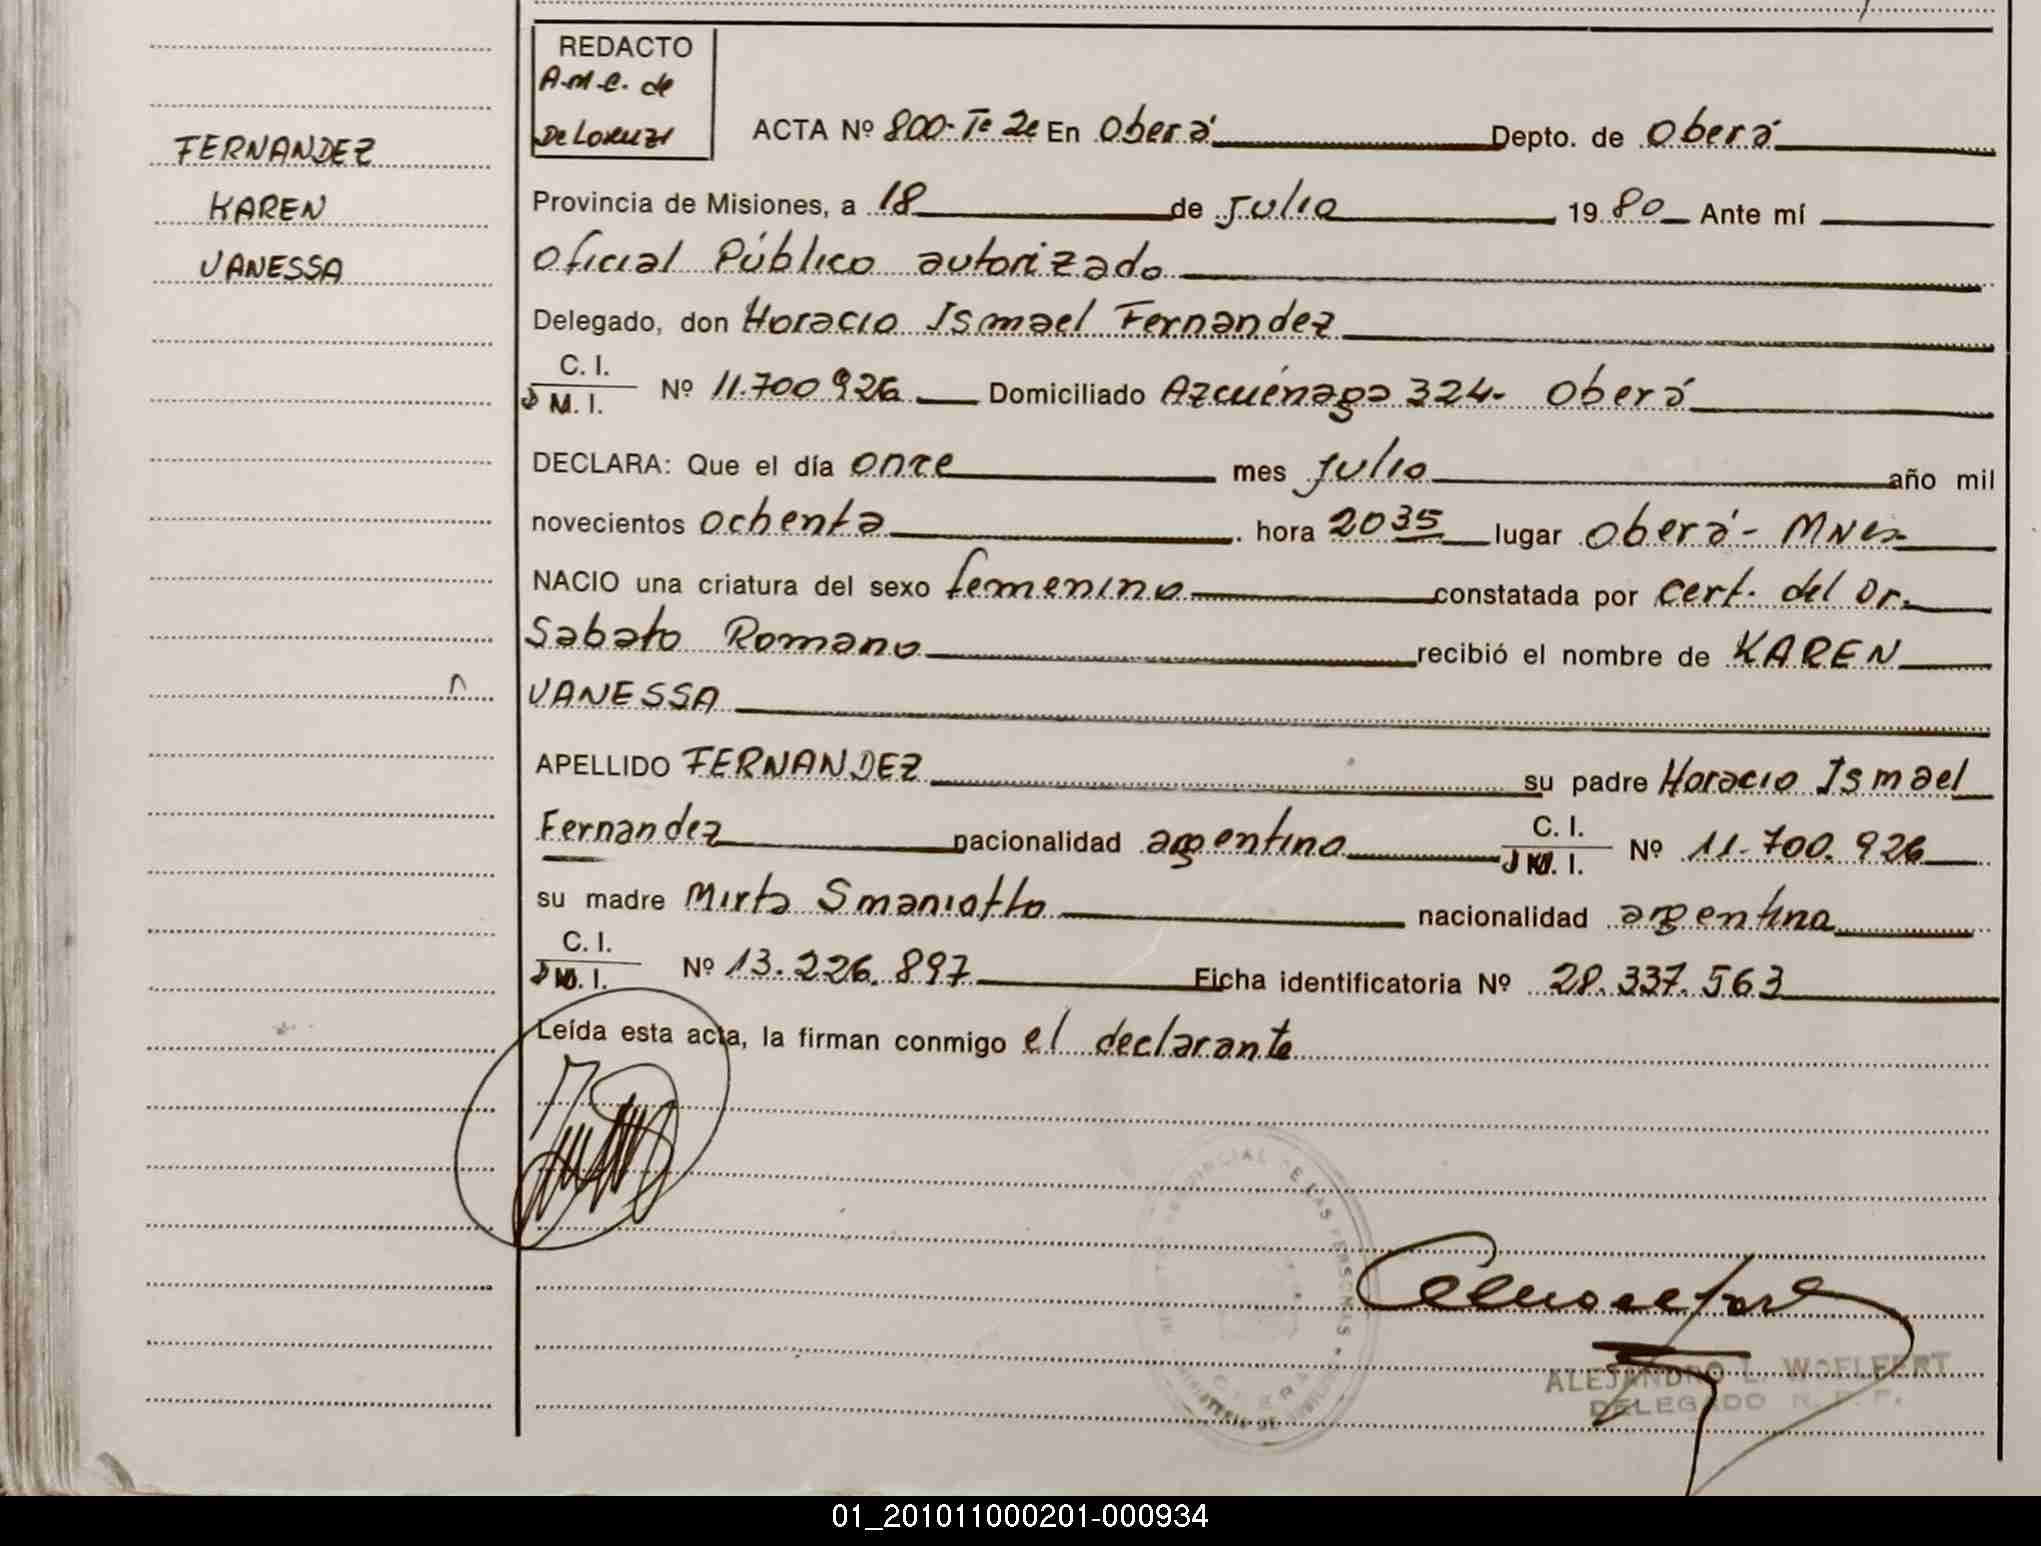 REDACTO
A.M.C. de
De Lorenzi
FERNANDEZ
KAREN
VANESSA
ACTA Nº 800-Tº 2º En Oberá Depto. de Oberá
Provincia de Misiones, a 18 de Julio 1980 Ante mí
Oficial Público autorizado
Delegado, don Horacio Ismael Fernandez
C. I.
D M. I. Nº 11.700926 Domiciliado Azcuénaga 324- Oberá
DECLARA: Que el día once mes Julio año mil
novecientos ochenta hora 2035 lugar Oberá- Mnes
NACIO una criatura del sexo femenino constatada por cert. del Dr.
Sabato Romano recibió el nombre de KAREN
VANESSA
APELLIDO FERNANDEZ su padre Horacio Ismael
Fernandez nacionalidad argentina C. I.
D N. I. Nº 11.700.926
su madre Mirta Smaniotto nacionalidad argentina
C. I.
D N. I. Nº 13.226.897 Ficha identificatoria Nº 28.337.563
Leída esta acta, la firman conmigo el declarante
PROVINCIAL DE LAS PERSONAS
OBERA
ALEJANDRO L. WOELFERT
DELEGADO R. P. P.
01_201011000201-000934